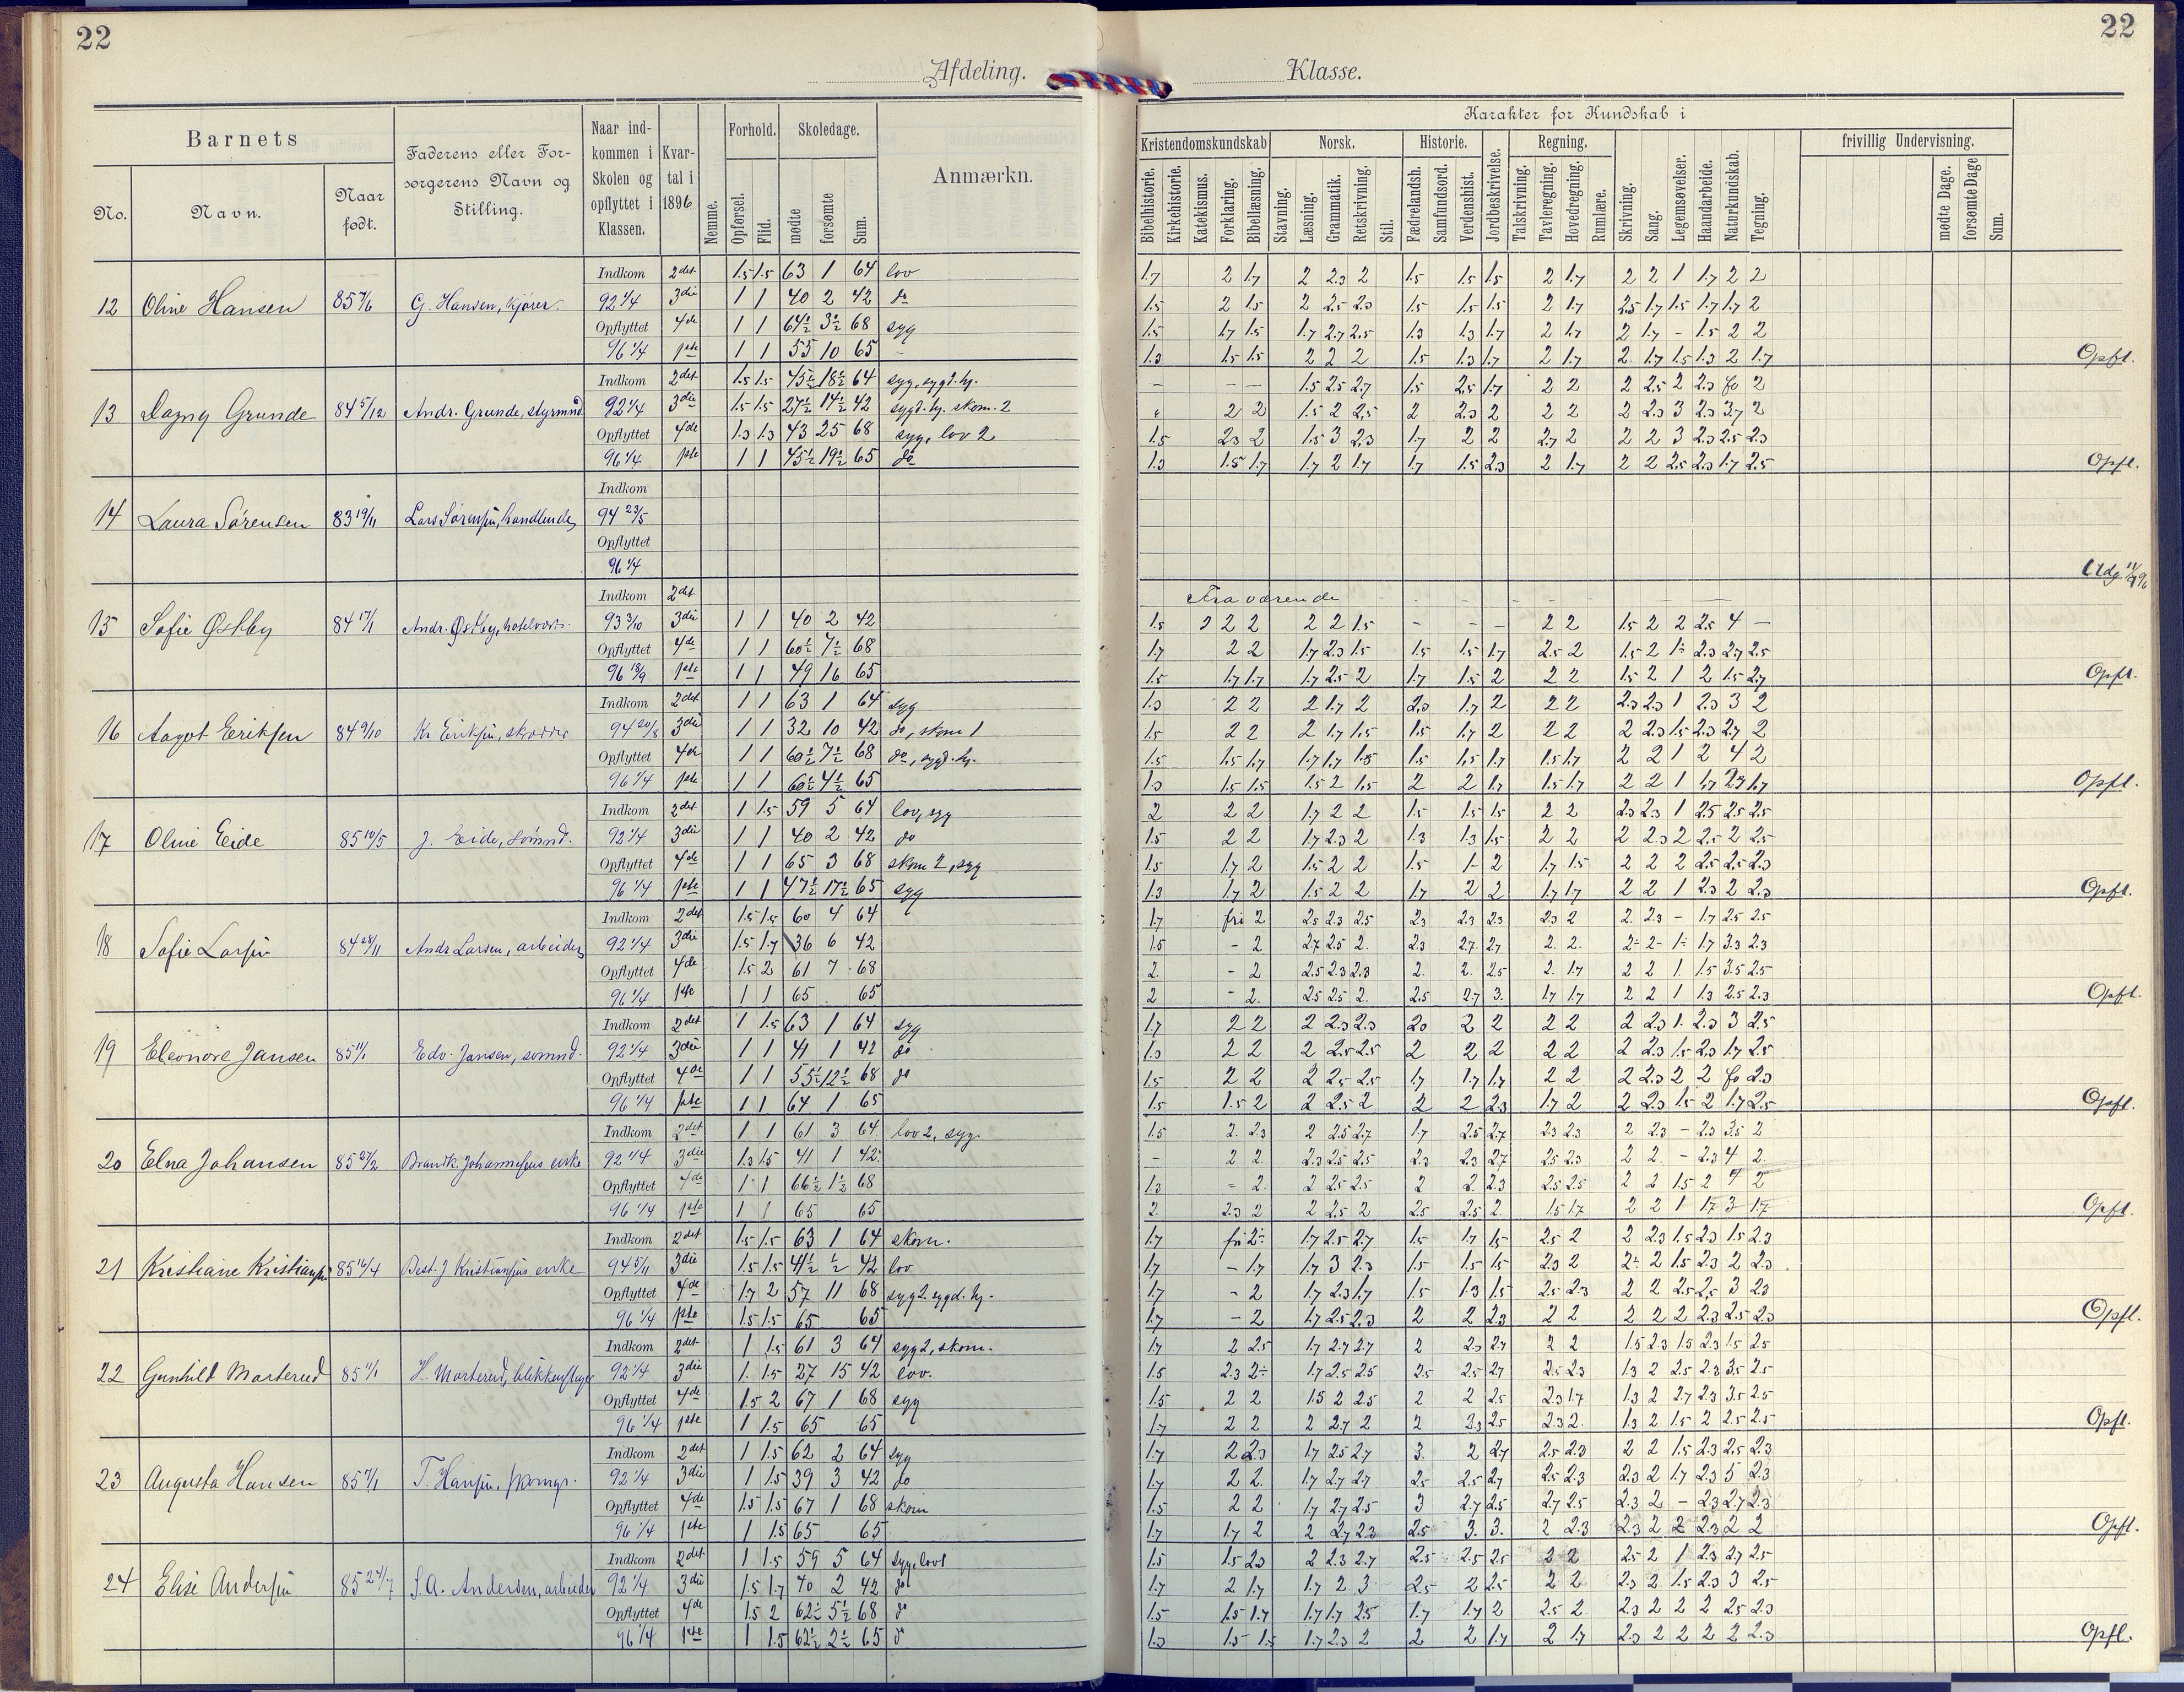 22
Afdeling.
Barnets
No.
Navn.
Naar født.
Faderens eller Forsørgerens Navn og Stilling.
Naar indkommen i Skolen og opflyttet i Klassen.
Kvartal i 1896
Nemme.
Forhold.
Opførsel.
Flid.
Skoledage.
mødte
forsømte
Sum.
Anmærkn.
12 Oline Hansen G. Hansen, kjører.
Indkom 2det 1.5 1.5 63 1 64 lov
92 1/4 3die 1 1 40 2 42 do
Opflyttet 4de 1 1 64½ 3½ 68 syg
96 1/4 1ste 1 1 55 10 65 -
13 Dagny Grunde 84 5/12 Andr. Grunde, styrmnd.
Indkom 2det 1.5 1.5 45½ 18½ 64 syg, sygd. hj.
92 1/4 3die 1.5 1.5 27½ 14½ 42 sygd. hj. skom. 2
Opflyttet 4de 1.3 1.3 43 25 68 syg, lov 2
96 1/4 1ste 1 1 45½ 19½ 65 do
14 Laura Sørensen 83 19/11 Lars Sørensen, handlende
Indkom
94 23/5
Opflyttet
96 1/4
15 Sofie Østby 84 17/1 Andr. Østby, hotelvært.
Indkom 2det
93 3/10 3die 1 1 40 2 42
Opflyttet 4de 1 1 60½ 7½ 68
96 18/9 1ste 1 1 49 16 65
16 Aagot Eriksen 84 9/10 Kr Eriksen, skrædder
Indkom 2det 1 1 63 1 64 syg
94 20/8 3die 1 1 32 10 42 do, skom 1
Opflyttet 4de 1 1 60½ 7½ 68 do, sygd. hj.
96 1/4 1ste 1 1 60½ 4½ 65
17 Oline Eide 85 10/5 J. Eide, sømnd.
Indkom 2det 1 1.5 59 5 64 lov, syg
92 1/4 3die 1 1 40 2 42 do
Opflyttet 4de 1 1 65 3 68 skom 2, syg
96 1/4 1ste 1 1 47½ 17½ 65 syg
18 Sofie Larsen 84 28/11 Andr Larsen, arbeider
Indkom 2det 1.5 1.5 60 4 64
92 1/4 3die 1.5 1.7 36 6 42
Opflyttet 4de 1.5 2 61 7 68
96 1/4 1ste 1 1 65 65
19 Eleonore Jansen 85 11/1 Edv. Jansen, sømnd.
Indkom 2det 1 1.5 63 1 64 syg
92 1/4 3die 1 1 41 1 42 do
Opflyttet 4de 1 1 55½ 12½ 68 do
96 1/4 1ste 1 1 64 1 65
20 Elna Johansen 85 27/2 Brandk. Johannesens enke
Indkom 2det 1 1 61 3 64 lov 2, syg.
92 1/4 3die 1.3 1.5 41 1 42
Opflyttet 4de 1 1 66½ 1½ 68
96 1/4 1ste 1 1 65 65
21 Kristiane Kristiansen Best. J Kristiansens enke
Indkom 2det 1.5 1.5 63 1 64 skom.
94 5/11 3die 1.5 1.5 41½ ½ 42 lov
Opflyttet 4de 1.7 2 57 11 68 syg 2. sygd. hj.
96 1/4 1ste 1.5 1.5 65 65
22 Gunhild Marterud H. Marterud, blikkenslager
Indkom 2det 1 1.5 61 3 64 syg 2, skom.
92 1/4 3die 1. 1.5 27 15 42 lov.
Opflyttet 4de 1.5 2 67 1 68 syg
96 1/4 1ste 1 1.5 65 65
23 Augusta Hansen T. Hansen,
Indkom 2det 1 1.5 62 2 64 syg
92 1/4 3die 1 1.5 39 3 42 do
Opflyttet 4de 1.5 1.5 67 1 68 skom
96 1/4 1ste 1 1.5 65 65
24 Elise Andersen 85 24/7 S. A. Andersen, arbeider
Indkom 2det 1 1.5 59 5 64 syg, lov 1
92 1/4 3die 1.5 1.7 40 2 42 do
Opflyttet 4de 1.5 2 62½ 5½ 68 do
96 1/4 1ste 1 1.5 62½ 2½ 65
22
Klasse.
Karakter for Kundskab i
Kristendomskundskab
Bibelhistorie.
Kirkehistorie.
Katekismus.
Forklaring.
Bibellæsning.
Norsk.
Stavning.
Læsning.
Grammatik.
Retskrivning.
Stil.
Historie.
Fædrelandsh.
Samfundsord.
Verdenshist.
Jordbeskrivelse.
Regning.
Talskrivning.
Tavleregning.
Hovedregning.
Rumlære.
Skrivning.
Sang.
Legemsøvelser.
Haandarbeide.
Naturkundskab.
Tegning.
frivillig Undervisning.
mødte Dage.
forsømte Dage
Sum.
1.7 2 1.7 2 2.3 2 1.5 1.5 1.5 2 1.7 2 2 1 1.7 2 2
1.5 2 1.5 2 2.5 2.3 1.5 1.5 1.5 2 1.7 2.5 1.7 1.5 1.7 1.7 2
1.5 1.7 1.5 1.7 2.7 2.5 1.3 1.3 1.7 2 1.7 2 1.7 - 1.5 2 2
1.3 1.5 1.5 2 2 2 1.5 1.3 1.7 2 1.7 2 1.7 1.5 1.3 2 1.7 Opfl.
- - - 1.5 2.5 2.7 1.5 2.5 1.7 2 2 2 2.5 2 2.3 fo 2
2 2 1.5 2 2.5 2 2.3 2 2 2 2 2.3 3 2.3 3.7 2
1.5 2.3 2 1.5 3 2.3 1.7 2 2 2.7 2 2 2 3 2.3 2.5 2.3
1.3 1.5 1.7 1.7 2 1.7 1.7 1.5 2.3 2 1.7 2 2 2.5 2.3 1.7 2.5 Opfl.
Udg.
Fraværende
1.5 2 2 2 2 1.5 - - - 2 2 1.5 2 2 2.5 4 -
1.7 2 2 1.7 2.3 1.5 1.5 1.5 1.7 2.5 2 1.5 2 1÷ 2.3 2.7 2.5
1.5 1.7 1.7 1.7 2.5 2 1.7 1.5 2 2 2 1.5 2 1 2 1.5 2.7 Opfl.
1.3 2 2 2 1.7 2 2.3 1.7 2 2 2 2.3 2.3 1 2.3 3 2
1.5 2 2 2 1.7 1.5 1.5 1.7 2 2 2 2 2.3 1.5 2.3 2.7 2
1.5 1.5 1.7 1.7 1.7 1.5 1.5 1.5 1.7 1.5 1.7 2 2 1 2 4 2
1.3 1.5 1.5 1.5 2 1.5 2 2 1.7 1.5 1.7 2 2 1 1.7 2.3 1.7 Opfl.
2 2 2 1.7 2 2 1.5 1.5 1.5 2 2 2.3 2.3 1 2.5 2.5 2.5
1.5 2 2 1.7 2.3 2 1.3 1.3 1.5 2 2 2 2.3 2 2.5 2 2.5
1.5 1.7 2 1.5 2 2 1.5 1- 2 1.7 1.5 2 2 2 2.5 2.5 2.3
1.3 1.7 2 1.5 2 2 1.7 2 2 1.7 1.7 2 2 1 2.3 2 2.3 Opfl.
1.7 fri 2 2.5 2.3 2.5 2.3 2.3 2.3 2.3 2 2. 2.3 - 1.7 2.5 2.5
1.5 - 2 2.7 2.5 2. 2.3 2.7 2.7 2. 2. 2÷ 2- 1÷ 1.7 3.3 2.3
2. - 2 2.5 2.3 2.3 2. 2. 2.5 2. 1.7 2 2 1. 1.5 3.5 2.5
2 - 2. 2.5 2.5 2. 2.5 2.7 3. 1.7 1.7 2 2 1 1.3 2.5 2.3 Opfl.
1.7 2 2 2 2.3 2.3 2.0 2 2 2 2 2 2.3 1. 2.3 3 2.5
1.3 2 2 2 2.5 2.5 2 2 2 2 2 2 2.3 1.5 2.3 1.7 2.5
1.5 2 2 2 2.5 2.5 1.7 1.7 1.7 2 2 2 2.3 2 2 fo 2.3
1.5 1.5 2 2 2.5 2 2 2 2.3 1.7 2 2 2.3 1.5 2 1.7 2.5 Opfl.
1.5 2. 2.3 2 2.5 2.7 1.7 2.5 2.7 2.3 2.3 2 2.3 - 2.3 3.5 2
- 2 2 2.3 2.5 2.5 2.3 2.3 2.7 2.5 2.3 2 2. - 2.3 4 2.
1.3 - 2. 2 2.5 2.5 2 2. 2.3 2.5 2.5 2 2 1.5 2 4 2
2. 2.3 2 2 2.5 2 2.5 2.5 2. 1.5 1.7 2 2 1 1.7 3 1.7 Opfl.
1.7 fri 2÷ 1.7 2.5 2.7 1.5 1.7 1.5 2.5 2 2 2.3 1.5 2.3 1.5 2.3
1.7 - 1.7 1.7 3 2.3 1.5 1.5 1.5 2.3 2 2÷ 2 1.5 2.3 2 2.3
1.7 - 2 1.7 2.3 1.7 1.5 1.3 1.5 2.5 2.3 2 2 2.5 2.5 3 2.3
1.7 - 2 1.7 2.5 2.3 2 2 2.3 2 2 2 2 2 2.3 2.5 2.3 Opfl.
1.7 2 2.5 1.7 2.7 2.7 2 2.3 2.7 2 2 1.5 2.3 1.5 2.3 1.5 2.5
1.5 2.3 2÷ 1.7 2.5 2.5 2.5 2.5 2.7 2.5 2.3 1.3 2 2.5 2.3 3.5 2.5
1.5 2 2 1.5 2 2.5 2 2 2.5 2.3 1.7 1.3 2 2.7 2.3 3.5 2.5
1.7 2 2 2 2.7 2 2 2.3 2.5 2.3 2. 1.3 2 1.5 2 2.5 2.5 Opfl.
1.7 2 2.3 1.7 2.5 2.7 3. 2 2.7 2.5 2.3 2 2 1.5 2.3 2.5 2.3
1.7 2 2. 1.7 2.7 2.7 2.5 2.5 2.7 2.5 2.3 2.3 2 1.7 2.3 5 2.3
1.5 2 2 1.7 2.7 2.5 3 2.7 2.5 2.7 2.5 2.3 2 - 2.3 2.7 2.3
1.7 1.7 2 2 2.7 2.3 2.5 3. 3. 2 2.3 2.3 2 2 2.3 2 2 Opfl.
1.5 1.5 2.3 2 2.3 2.7 2.5 2.5 2.5 2 2 2.5 2 1 2.3 2.7 2.5
1.7 2 1.7 1.7 2 3 2.5 2 2.5 2 2 2.3 2 1.5 2.3 3 2.5
1.5 1.5 1.7 1.7 1.7 2.5 1.7 1.7 2 2.5 2 2.3 2 2 2 2.5 2.3
1.3 1.5 1.5 1.7 2.3 2 2 2 1.7 2 1.7 2.3 2 2 2 2 2.3 Opfl.